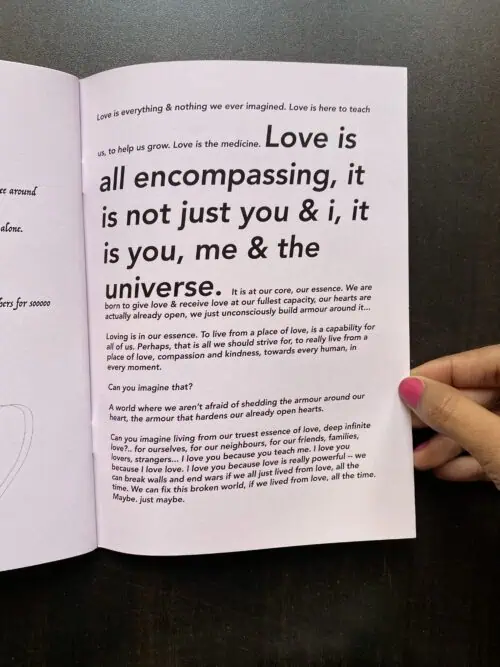 ee around
alone.
hers for sooooo
Love is everything & nothing we ever imagined. Love is here to teach
us, to help us grow. Love is the medicine. Love is
all encompassing, it
is not just you & i, it
is you, me & the
universe. It is at our core, our essence. We are
born to give love & receive love at our fullest capacity, our hearts are
actually already open, we just unconsciously build armour around it...
Loving is in our essence. To live from a place of love, is a capability for
all of us. Perhaps, that is all we should strive for, to really live from a
place of love, compassion and kindness, towards every human, in
every moment.
Can you imagine that?
A world where we aren't afraid of shedding the armour around our
heart, the armour that hardens our already open hearts.
Can you imagine living from our truest essence of love, deep infinite
love?.. for ourselves, for our neighbours, for our friends, families,
lovers, strangers... I love you because you teach me. I love you
because I love love. I love you because love is really powerful -- we
can break walls and end wars if we all just lived from love, all the
time. We can fix this broken world, if we lived from love, all the time.
Maybe. just maybe.